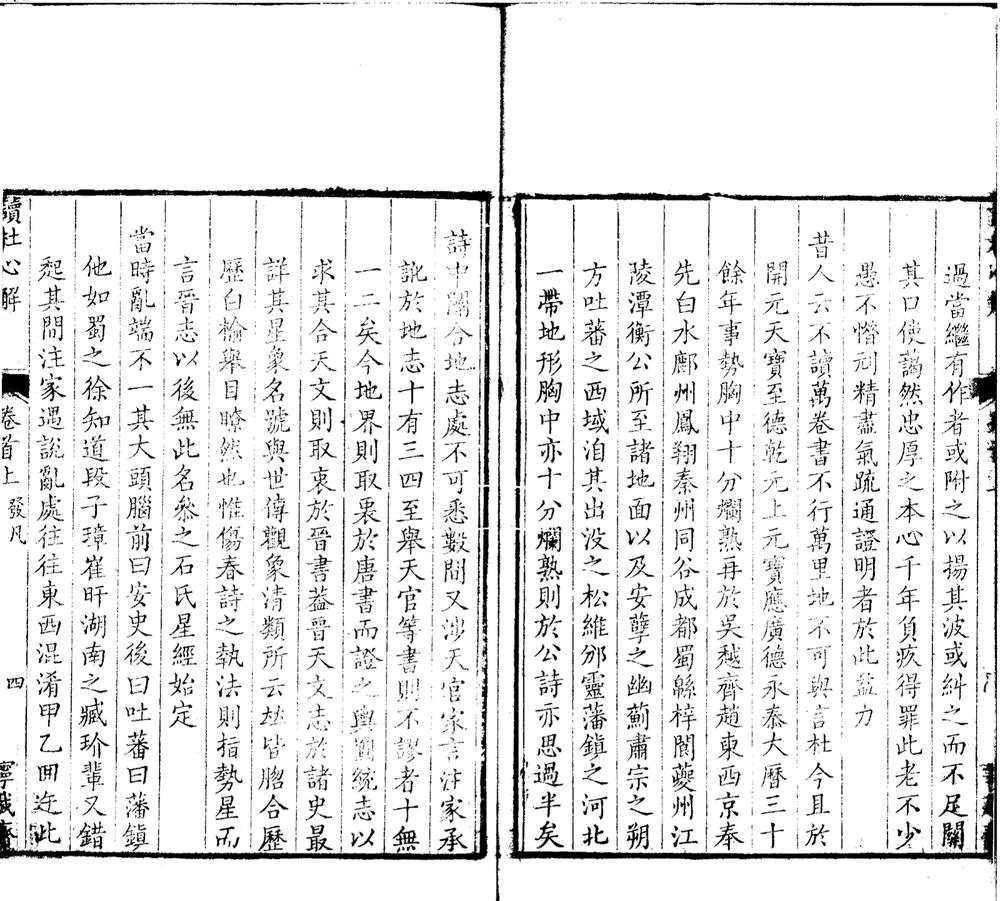 過當繼有作者或附之以揚其波或糾之而不足關
其口使藹然忠厚之本心千年負疚得罪此老不少
愚不憯刓精盡氣疏通證明者於此益力
昔人云不讀萬卷書不行萬里地不可與言杜今且於
開元天寶至德乾元上元寶應廣德永泰大曆三十
餘年事勢胸中十分爛熟再於吳越齊趙東西京奉
先白水鄜州鳳翔秦州同谷成都蜀緜梓閬夔州江
陵潭衡公所至諸地面以及安孽之幽薊肅宗之朔
方吐蕃之西域洎其出没之松維邠靈藩鎭之河北
一帶地形胸中亦十分爛熟則於公詩亦思過半矣
詩中關合地志處不可悉數間又涉天官家言注家承
訛於地志十有三四至舉天官等書則不謬者十無
一二矣今地界則取裏於唐書而證之輿圖統志以
求其合天文則取衷於晉書葢晉天文志於諸史最
詳其星象名號與世傳觀象清類所云𠀤皆脗合歷
歷白榆舉目瞭然也惟傷春詩之執法則指勢星而
言晉志以後無此名叅之石氏星經始定
當時亂端不一其大頭腦前曰安史後曰吐蕃曰藩鎭
他如蜀之徐知道段子璋崔旰湖南之臧玠輩又錯
起其間注家遇說亂處往往東西混淆甲乙回迕此
讀杜心解
卷首上 發凡
四
寧我齋